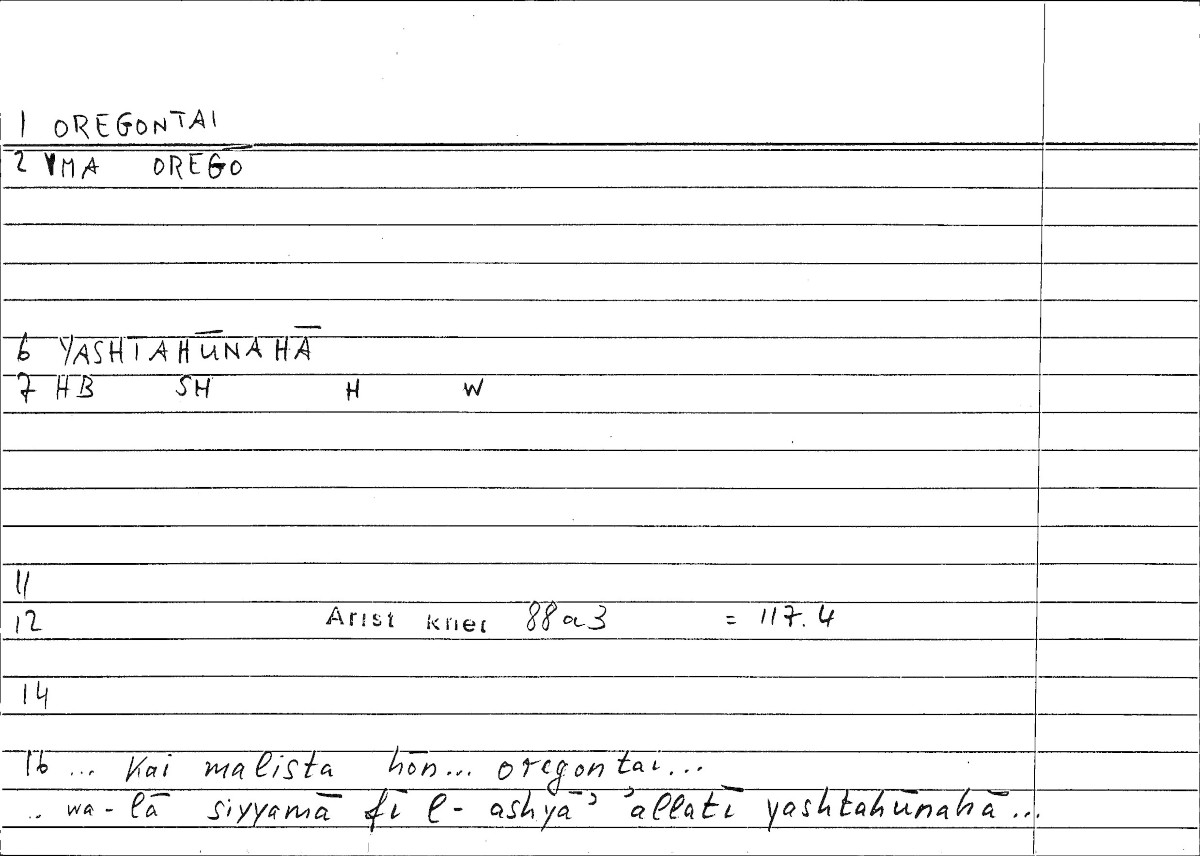 1 OREGONTAI
2 VMA OREGO
6 YASHTAHŪNAHĀ
7 HB SH H W
11
12 Arist 88a3 = 117.4
14
16 ... Kai malista hōn... oregontai...
.. wa-lā siyyamā fī l-ashyāʾ ʾallatī yashtahūnahā...